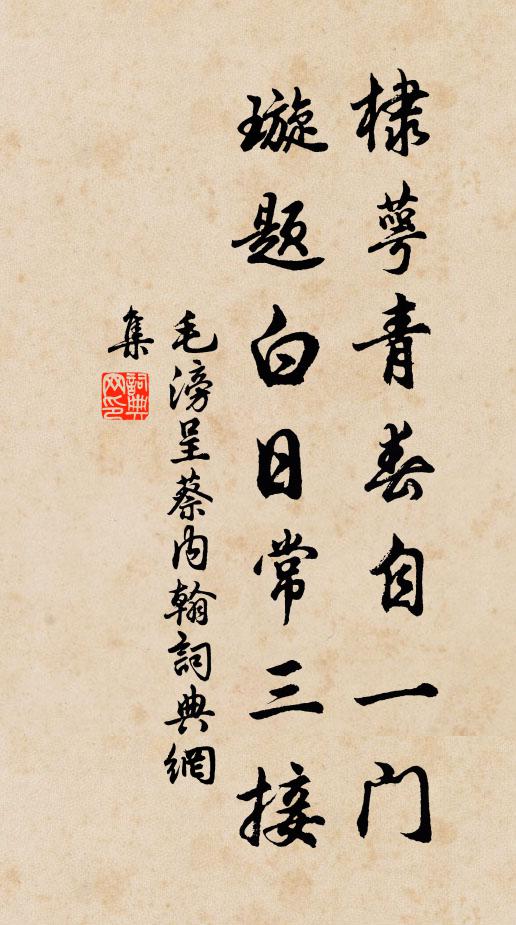 棣萼青春自一门
璇题白日常三接
毛滂呈蔡内翰詞典網
集
詞典網印